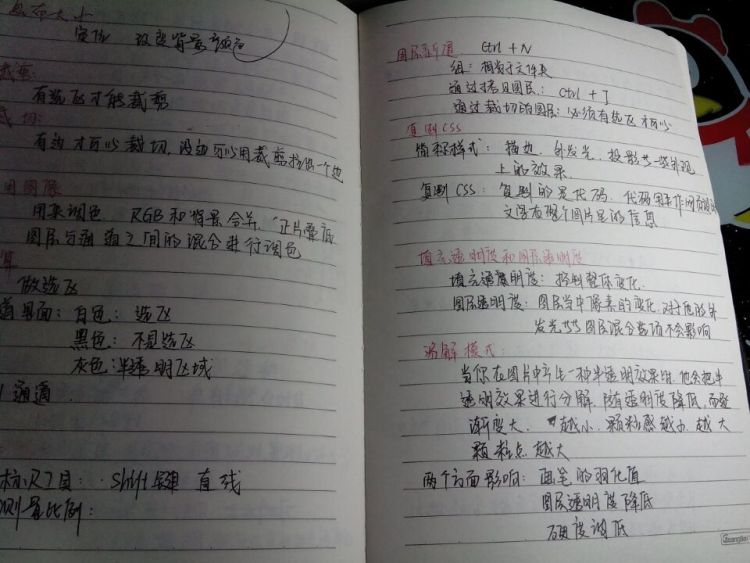 画布大小
定位 改变背景
裁剪:
有选区才能裁剪
裁切:
有边才可以裁切,没边可以用裁剪拉出一个边
用图层
用来调色. RGB和背景合并, 正片叠底
图层与通道之间的混合进行调色
算
做选区
道里面:白色:选区
黑色:不是选区
灰色:半透明区域
通道
标尺工具: Shift键 直线
测量比例:
图层新建 Ctrl+N
组:相当于文件夹
通过拷贝图层: Ctrl+J
通过裁切的图层:必须有选区才可以
复制CSS
图层样式:描边、外发光、投影等一些外观
上的效果
复制CSS:复制的是代码. 代码用于作网页
文字在整个图片里的信息
填充透明度和图层透明度
填充透明度:控制整体变化.
图层透明度:图层当中像素的变化.对于他的外
发光等等图层混合选项不会影响
溶解模式:
当你在图片中产生一种半透明效果的 他会把半
透明效果进行分解,随透明度降低,画笔
渐变大. 越小.颗粒感越小.越大
颗粒点.越大
两个方面影响:画笔的羽化值
图层透明度降低
硬度调低
Guangbo